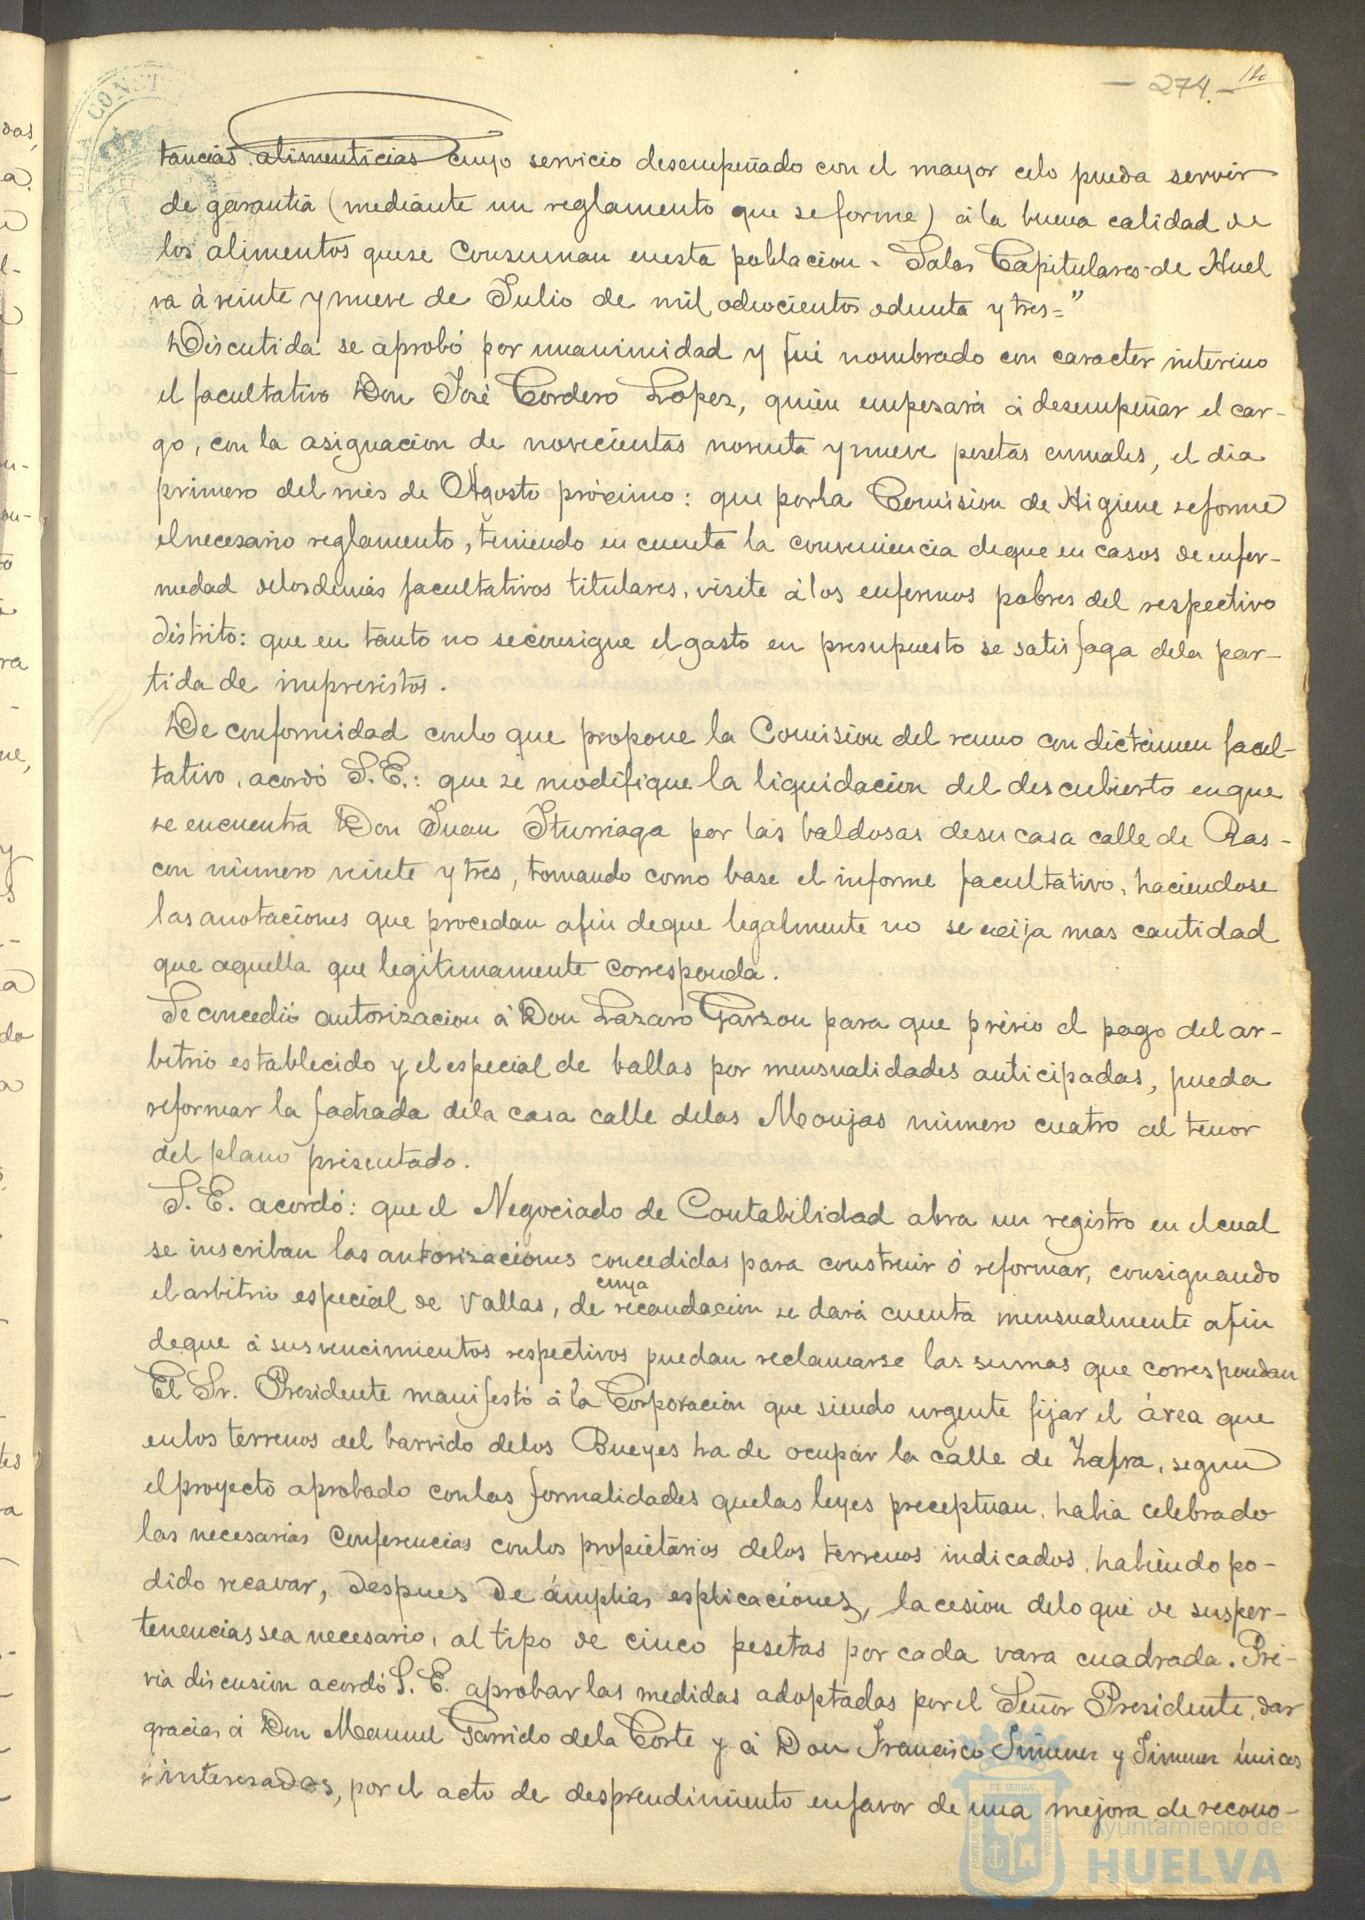 - 274 -
tancias alimenticias cuyo servicio desempeñado con el mayor celo pueda servir
de garantia (mediante un reglamento que se forme) á la buena calidad de
los alimentos quese consuman enesta poblacion - Salas Capitulares de Huel
va á veinte y nueve de Julio de mil ochocientos ochenta y tres="
Discutida se aprobó por unanimidad y fué nombrado con caracter interino
el facultativo Don José Cordero Lopez, quien empezará á desempeñar el car-
go, con la asignacion de novecientas noventa y nueve pesetas anuales, el dia
primero del mes de Agosto próximo: que porla Comision de Higiene seforme
elnecesario reglamento, teniendo en cuenta la conveniencia deque en casos de enfer-
medad delosdemás facultativos titulares, visite á los enfermos pobres del respectivo
distrito: que en tanto no seconsigne el gasto en presupuesto se satisfaga dela par-
tida de imprevistos.
De conformidad conlo que propone la Comision del ramo con dictámen facul-
tativo, acordó S.E.: que se modifique la liquidacion del descubierto enque
se encuentra Don Juan Iturriaga por las baldosas desu casa calle de Ras-
con número veinte y tres, tomando como base el informe facultativo, haciendose
las anotaciones que procedan afin deque legalmente no se exija mas cantidad
que aquella que legitimamente corresponda.
Se concedió autorizacion á Don Lazaro Garzon para que prévio el pago del ar-
bitrio establecido y el especial de ballas por mensualidades anticipadas, pueda
reformar la fachada dela casa calle delas Monjas número cuatro al tenor
del plano presentado.
S. E. acordó: que el Negociado de Contabilidad abra un registro en elcual
se inscriban las autorizaciones concedidas para construir ó reformar, consignando
cuya
el arbitrio especial de Vallas, de recaudacion se dará cuenta mensualmente afin
deque á sus vencimientos respectivos puedan reclamarse las sumas que correspondan
El Sr. Presidente manifestó á la Corporacion que siendo urgente fijar el área que
enlos terrenos del barrido delos Bueyes ha de ocupar la calle de Zafra, segun
el proyecto aprobado conlas formalidades quelas leyes preceptuan, habia celebrado
las necesarias conferencias conlos propietarios delos terrenos indicados, habiendo po-
dido recavar, despues de ámplias esplicaciones, la cesion delo que de susper-
tenencias sea necesario, al tipo de cinco pesetas por cada vara cuadrada. Pré-
via discusion acordó S. E. aprobar las medidas adoptadas por el Señor Presidente, dar
gracias á Don Manuel Garrido dela Corte y á Don Francisco Jimenez y Jimenez únicos
interesados, por el acto de desprendimiento enfavor de una mejora de recono-
Ayuntamiento de
HUELVA